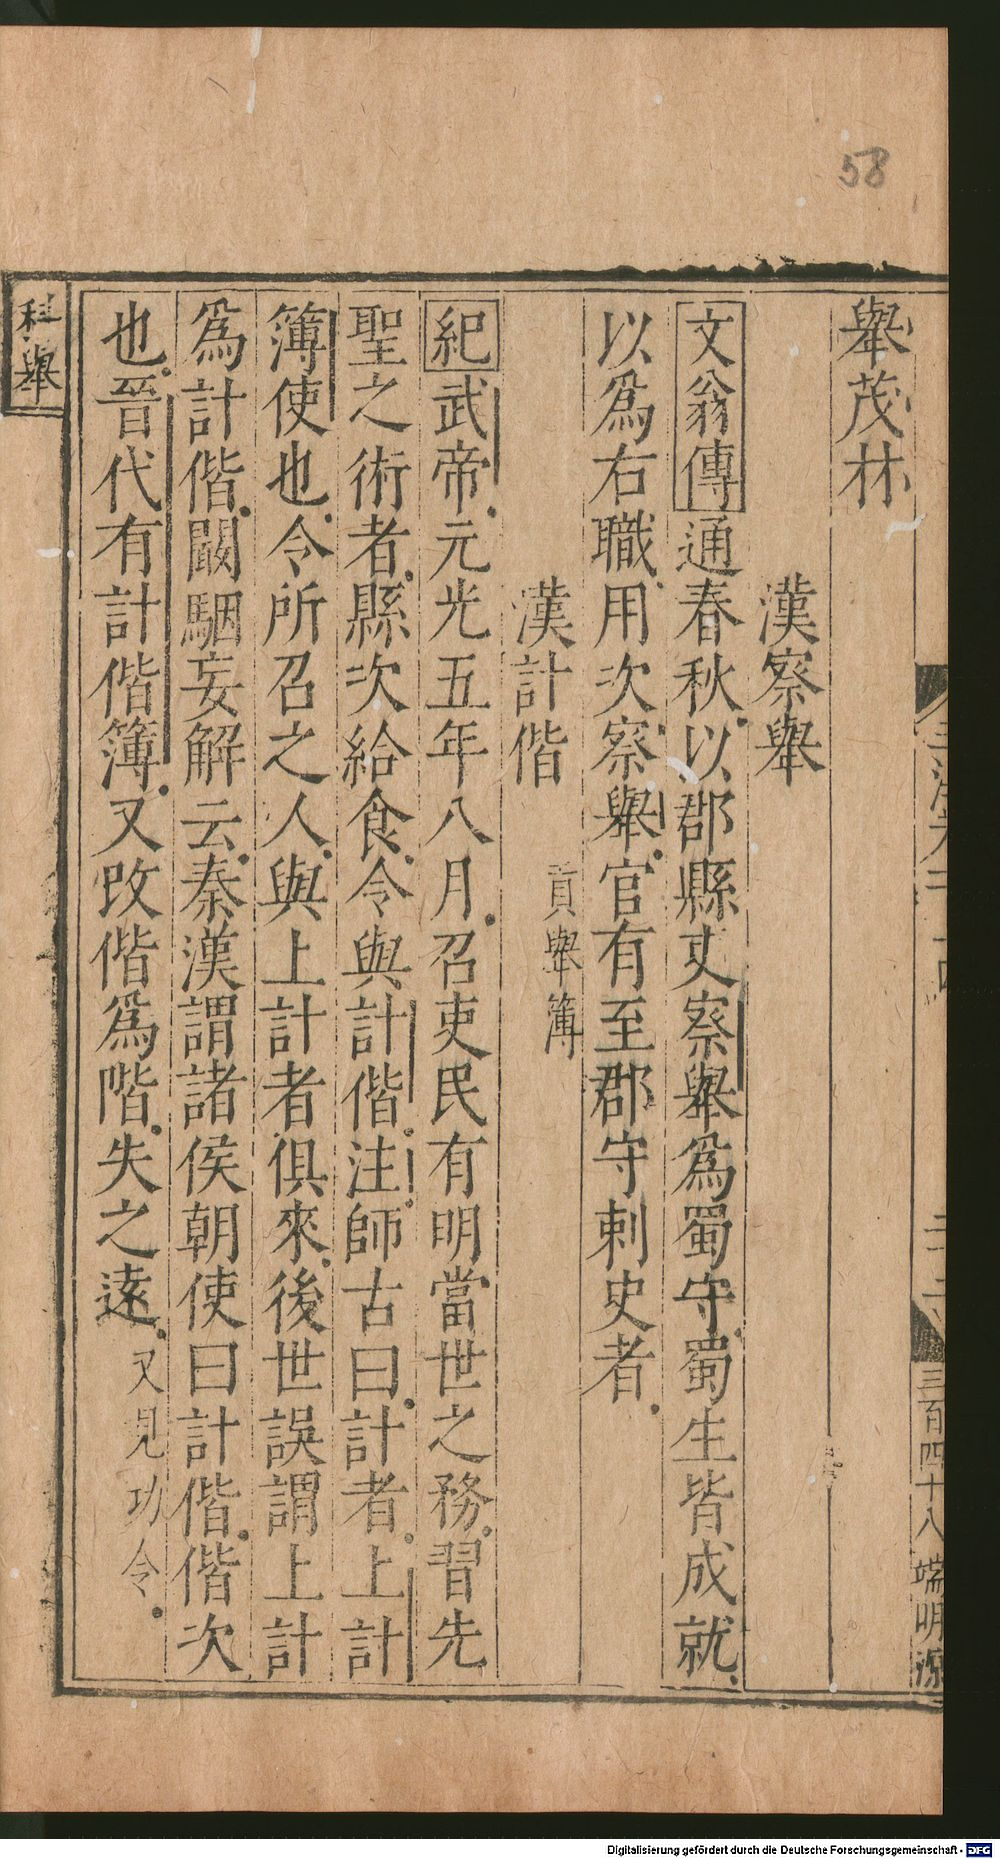 58
舉茂材
漢察舉
文翁傳通春秋以郡縣吏察舉爲蜀守蜀生皆成就
以爲右職用次察舉官有至郡守刺史者
漢計偕 貢舉簿
紀武帝元光五年八月召吏民有明當世之務習先
聖之術者縣次給食令與計偕注師古曰計者上計
簿使也令所召之人與上計者俱來後世誤謂上計
爲計偕闞駰妄解云秦漢謂諸侯朝使曰計偕偕次
也晉代有計偕簿又改偕爲階失之遠又見功令
科舉
三百四十八
Digitalisierung gefördert durch die Deutsche Forschungsgemeinschaft - DFG